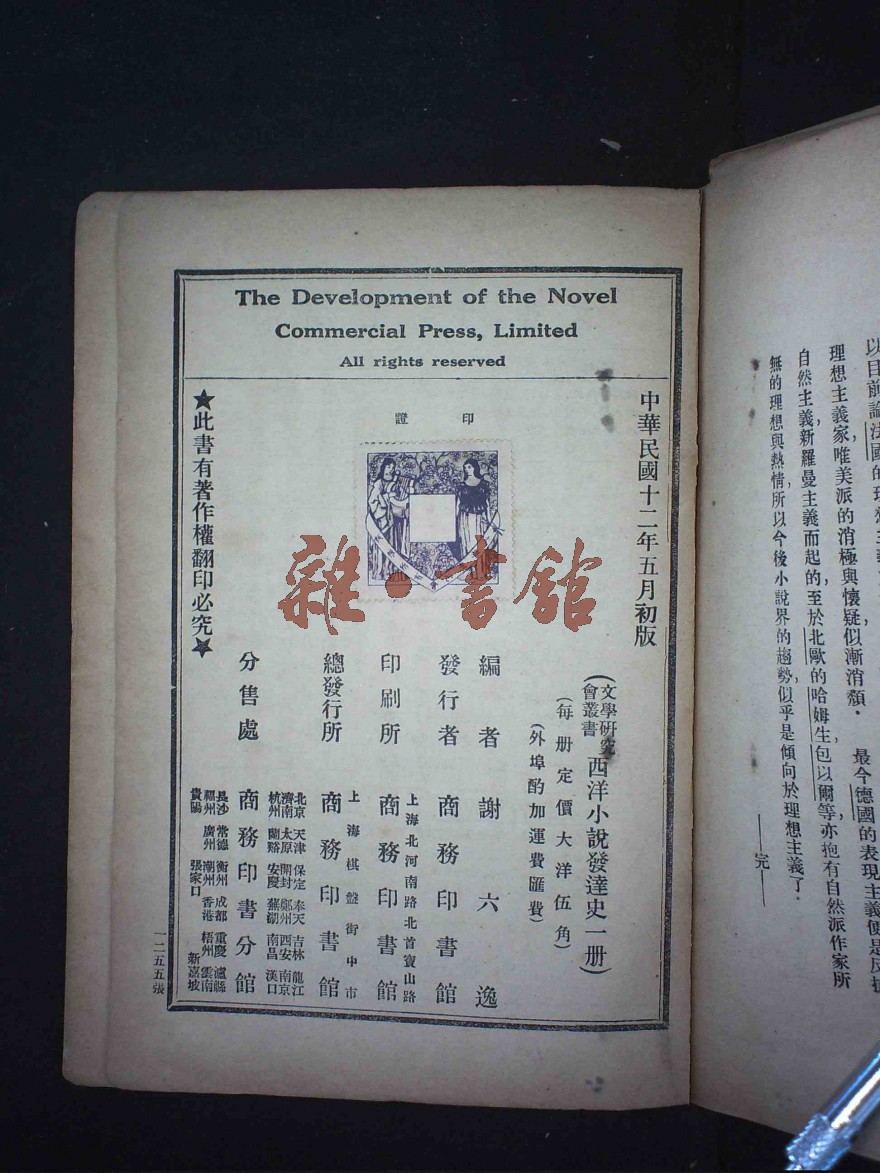 The Development of the Novel
Commercial Press, Limited
All rights reserved
印證
中華民國十二年五月初版
(文學研究會叢書西洋小說發達史一册)
(每册定價大洋伍角)
(外埠酌加運費匯費)
編者 謝六逸
發行者 商務印書館
上海北河南路北首寶山路
印刷所 商務印書館
上海棋盤街中市
總發行所 商務印書館
北京 天津 保定 奉天 吉林 龍江
濟南 太原 開封 鄭州 西安 南京
杭州 蘭谿 安慶 蕪湖 南昌 漢口
分售處 商務印書分館
長沙 常德 衡州 成都 重慶 瀘縣
福州 廣州 潮州 香港 梧州 雲南
貴陽 張家口 新嘉坡
★此書有著作權翻印必究★
一二五五張
雜·書館
以目前論法國的理想主義
理想主義家,唯美派的消極與懷疑似漸消頹. 最今德國的表現主義便是反抗
自然主義新羅曼主義而起的,至於北歐的哈姆生包以爾等亦抱有自然派作家所
無的理想與熱情,所以今後小說界的趨勢似乎是傾向於理想主義了.
——完——